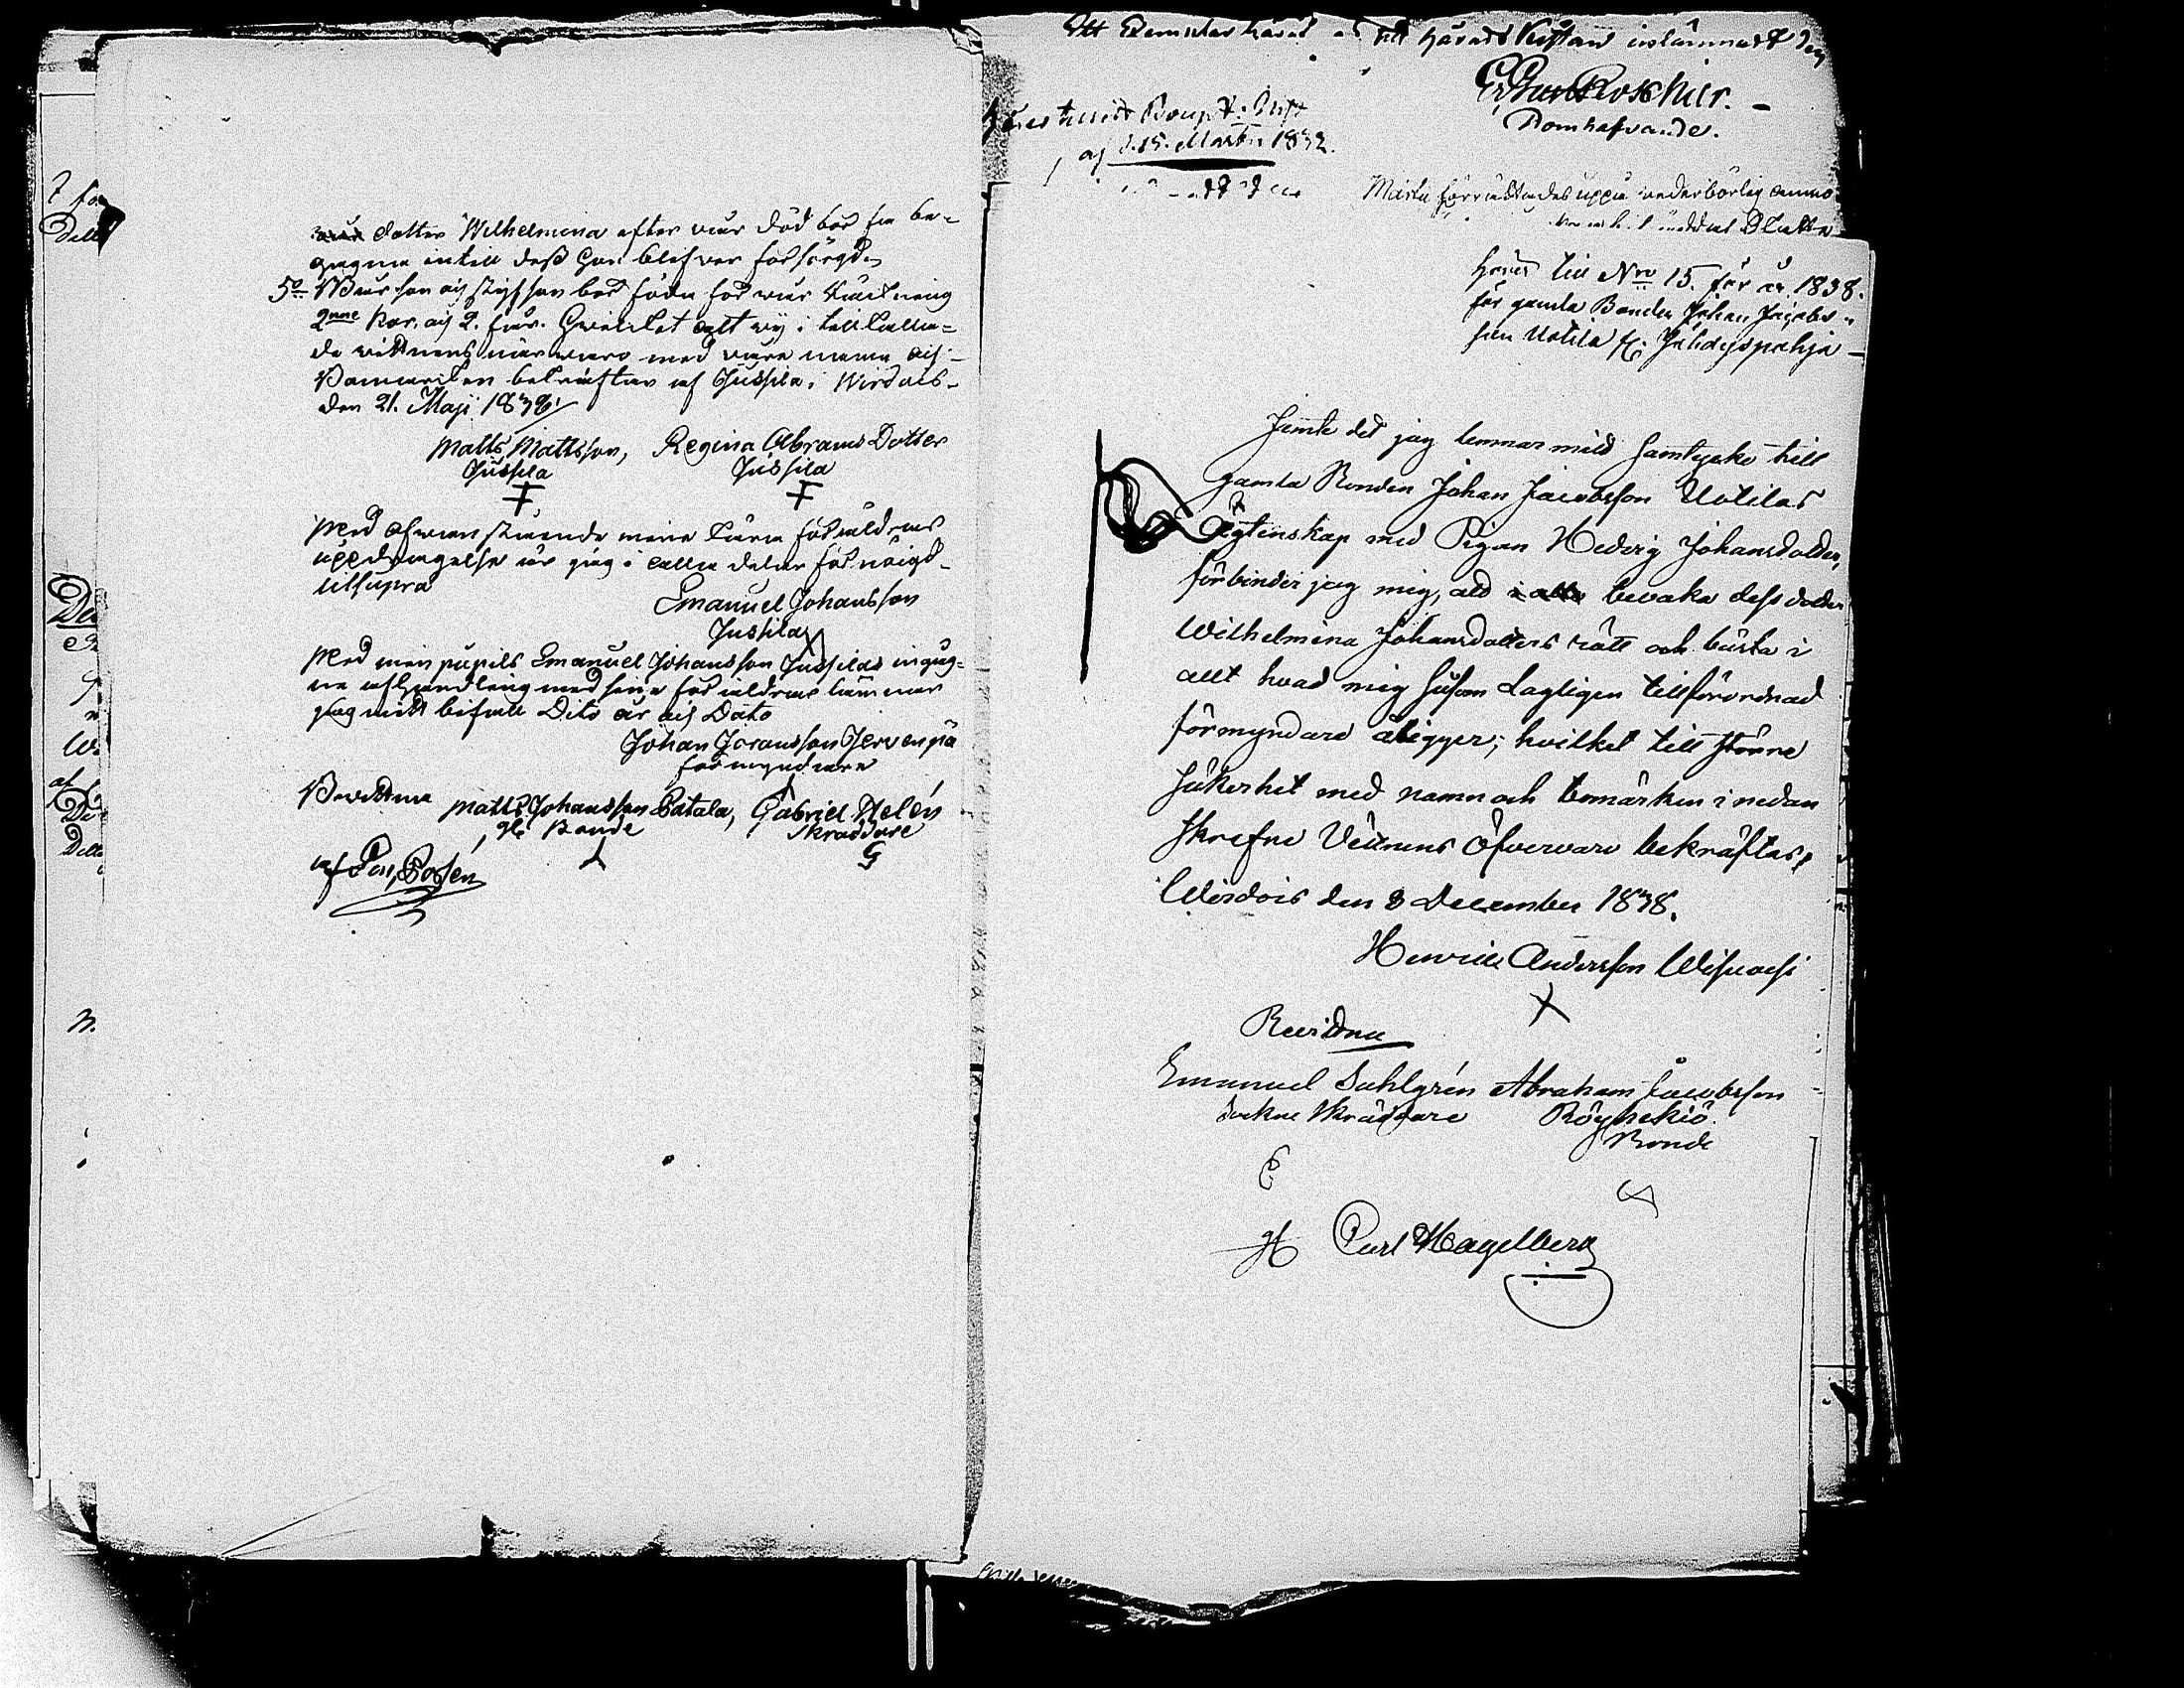 dotter Wilhelmina efter vår död bör få be-
gagna intill dess hon blifver försörgd
5o Vår son och styfson bör föda för vår räkning
2nne kor, och 2. får. Hvilket allt vy i tillkalla-
de vittnens närvaro med våra namn och
Bomärken bekräftar af Jussila i Wirdois
den 21. Maji 1838
Matts Mattsson, Regina Abrams Dotter
Jussila Jussila
Med ofvanstående mina kära föräldrars
uppdragelse är jag i alla delar förnöigd
utsupra
Emanuel Johansson
Jussila
Med min pupils Emanuel Johansson Jussilas ingug-
ne afhandling med sina föräldrar lämnar
jag mitt bifall Dito år och Dato
Johan Göransson Jervenpä
förmyndare
Bevittna Matts Johansson Patala, Gabriel Helén
Bonde Skräddare
G
Ett Exemplar häraf är till Härads Kistan inlämnadt den
Roschier.
Domhafvande.
Boupt:
af d. 15. Martii 1832.
Märta förrättades uppå vederbörlig
hörer till Nro 15. för år 1838.
för gamla Bonden Johan Jacobs-
son Uotila
Jemte det jag lemnar mitt samtycke till
gamla Bonden Johan Jacobsson Uotilas
Ägtenskap med Pigan Hedvig Johansdotter,
förbinder jag mig, att bevaka dess dotter
Wilhelmina Johansdotters rätt och bästa i
allt hvad mig såsom Lagligen tillförordnad
förmyndare åligger; hvilket till större
säkerhet med namn och bomärken i nedan
skrefne Vittnens öfvervaro bekräftas,
Wirdois den 8 December 1838.
Henrick Andersson
Bevittna
Emanuel Sahlgrén Abraham Jacobsson
Sockne Skräddare
Bonde
Carl Hagelberg